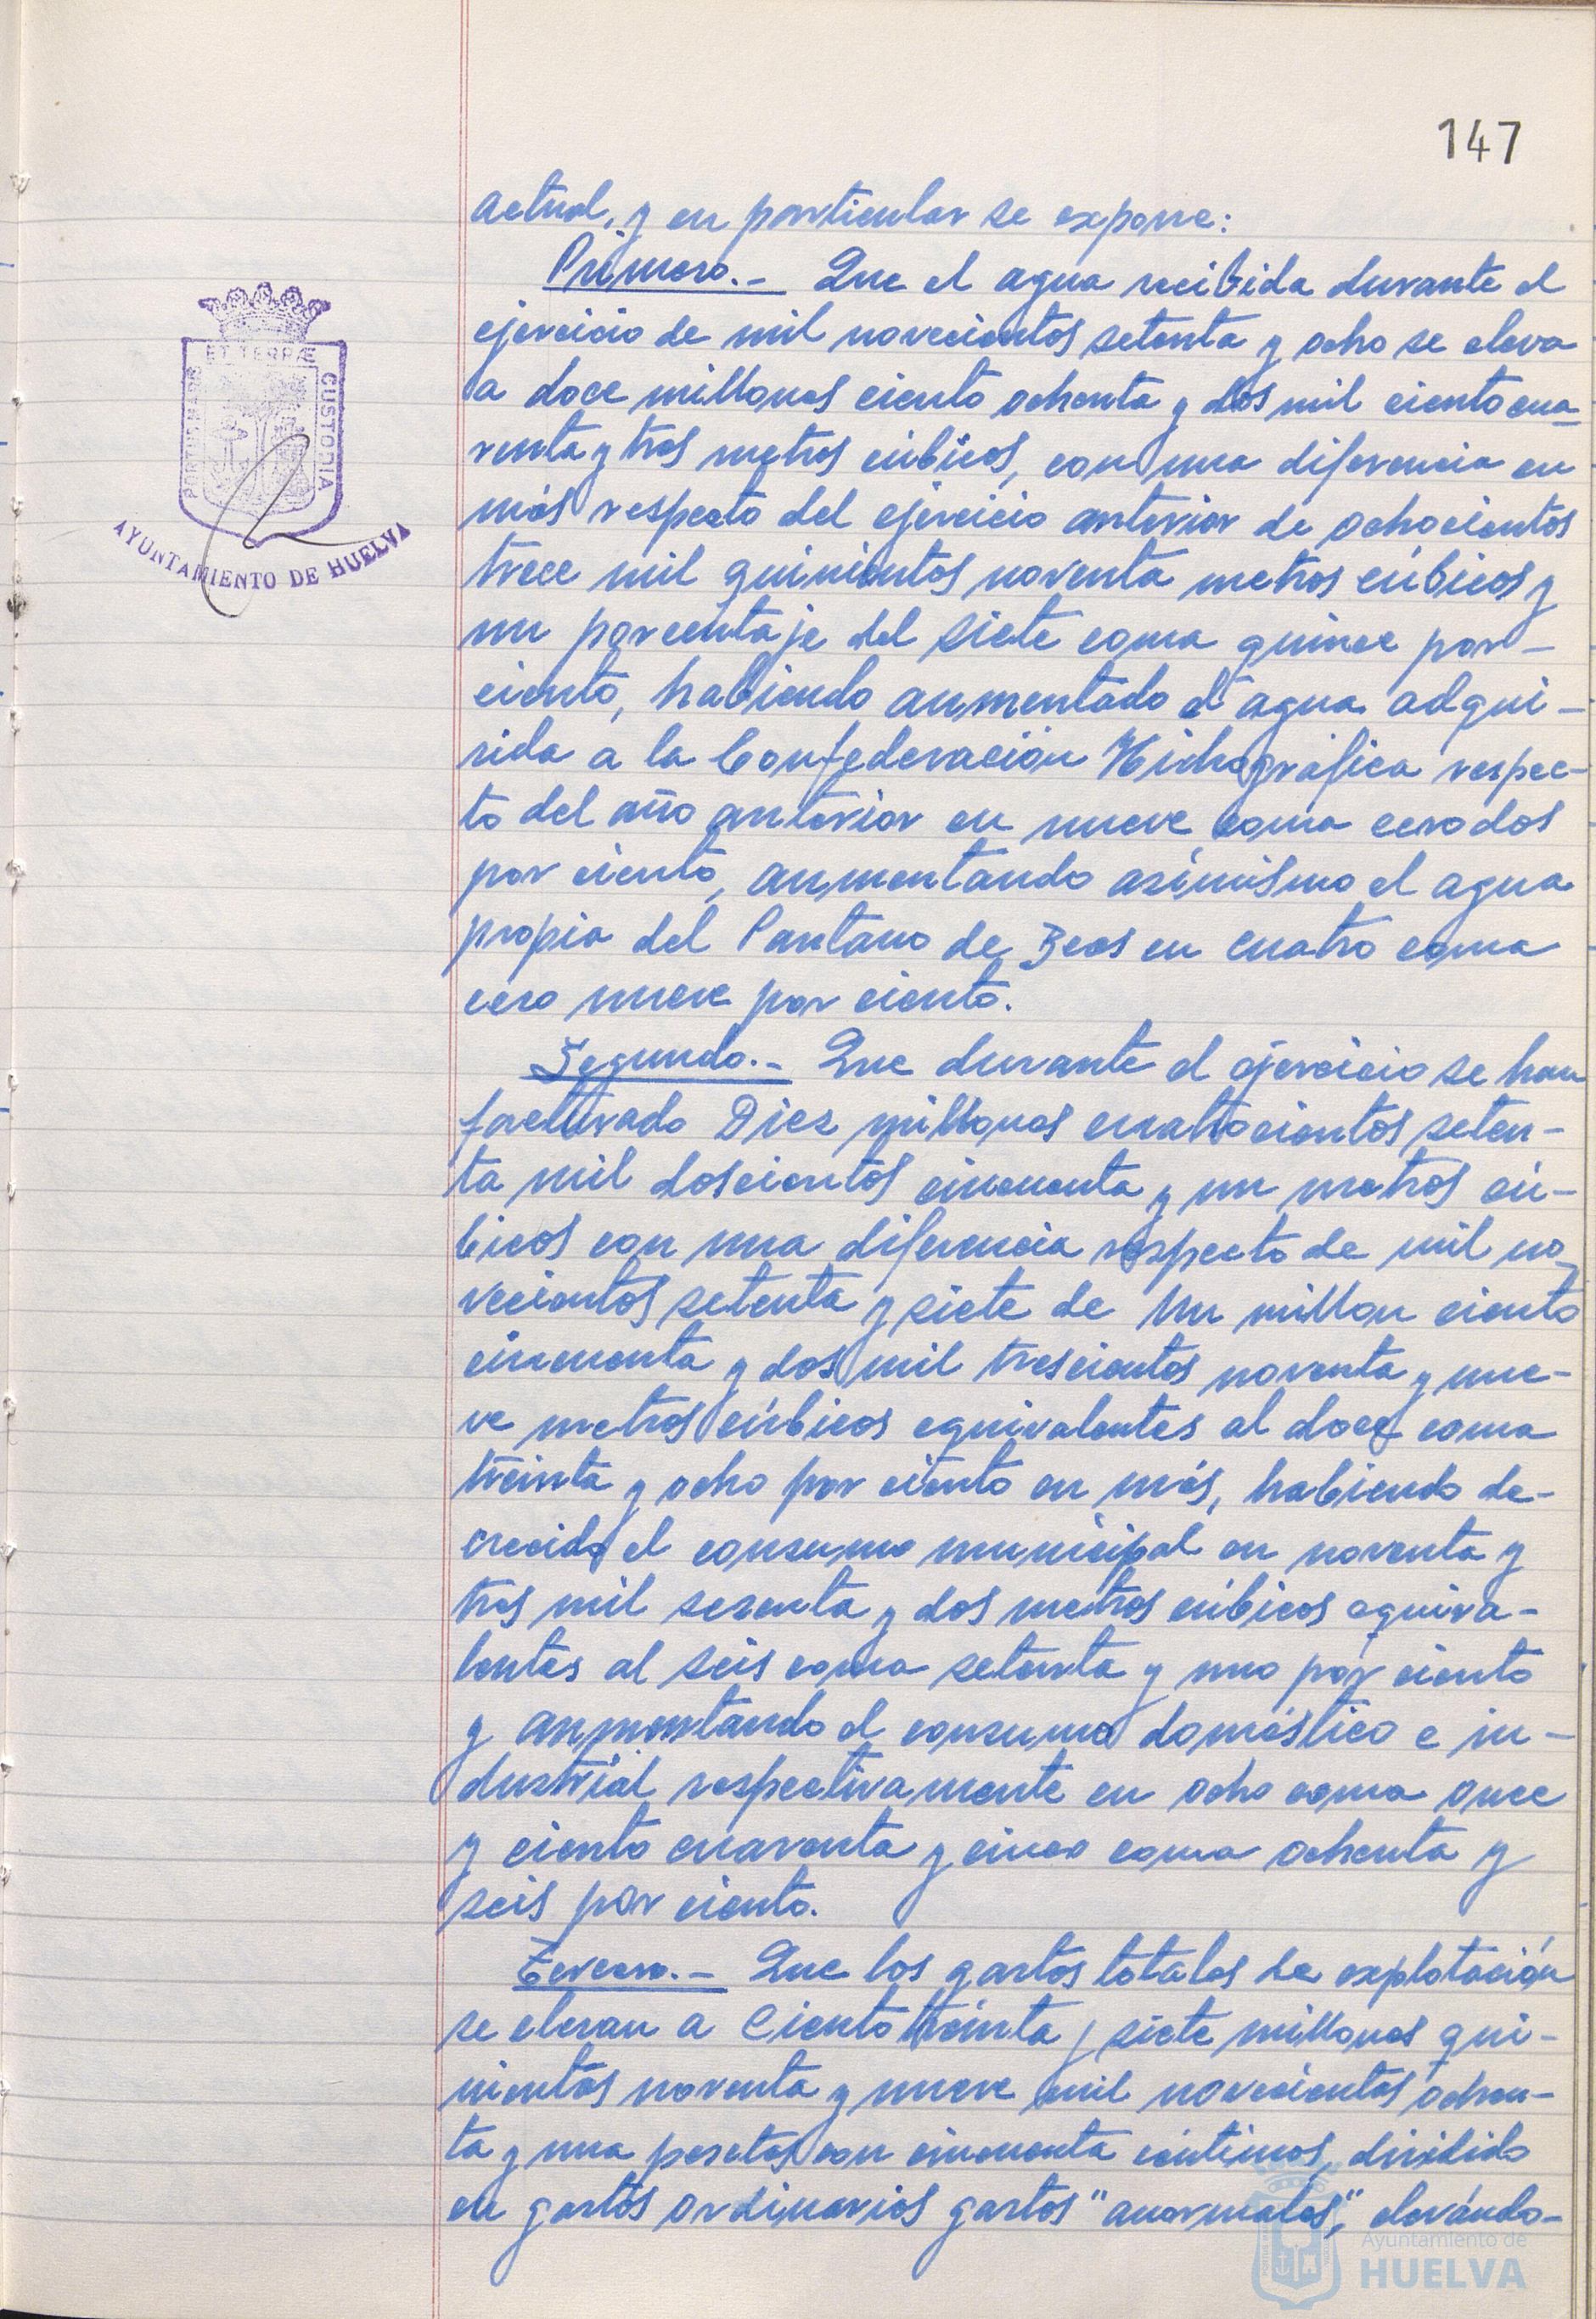 147
actual, y en particular se expone:
Primero.- Que el agua recibida durante el
ejercicio de mil novecientos setenta y ocho se eleva
a doce millones ciento ochenta y dos mil ciento cua-
renta y tres metros cúbicos, con una diferencia en
más respecto del ejercicio anterior de ochocientos
trece mil quinientos noventa metros cúbicos y
un porcentaje del siete coma quince por-
ciento, habiendo aumentado el agua adqui-
rida a la Confederación Hidrográfica respec-
to del año anterior en nueve coma cero dos
por ciento, aumentando asímismo el agua
propia del Pantano de Beas en cuatro coma
cero nueve por ciento.
Segundo.- Que durante el ejercicio se han
facturado Diez millones cuatrocientos seten-
ta mil doscientos cincuenta y un metros cú-
bicos con una diferencia respecto de mil no-
vecientos setenta y siete de Un millon ciento
cincuenta y dos mil trescientos noventa y nue-
ve metros cúbicos equivalentes al doce coma
treinta y ocho por ciento en más, habiendo de-
crecido el consumo municipal en noventa y
tres mil sesenta y dos metros cúbicos equiva-
lentes al seis coma setenta y uno por ciento
y aumentando el consumo doméstico e in-
dustrial respectivamente en ocho coma once
y ciento cuarenta y cinco coma ochenta y
seis por ciento.
Tercero.- Que los gastos totales de explotación
se elevan a Ciento treinta y siete millones qui-
nientos noventa y nueve mil novecientos ochen-
ta y una pesetas con cincuenta céntimos, dividido
en gastos ordinarios gastos "anormales", elevándo-
PORTUS MARIS
ET TERRÆ
CUSTODIA
AYUNTAMIENTO DE HUELVA
Ayuntamiento de
HUELVA